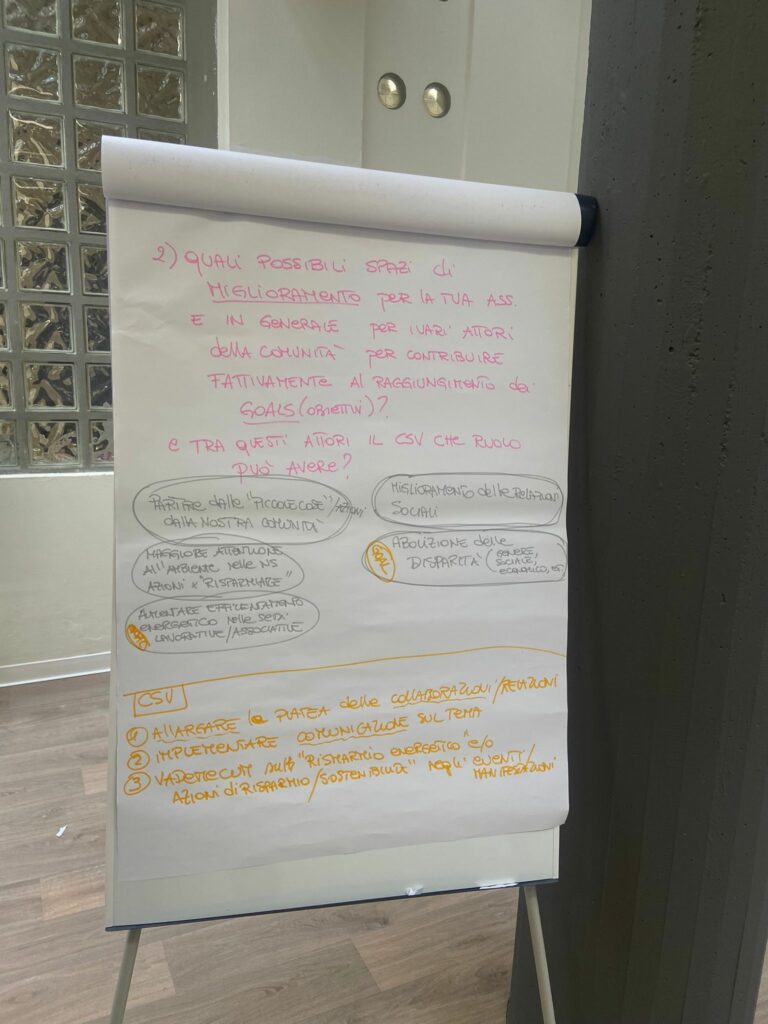 2) QUALI POSSIBILI SPAZI di
MIGLIORAMENTO PER LA TUA ASS.
E IN GENERALE PER I VARI ATTORI
della COMUNITÀ PER CONTRIBUIRE
FATTIVAMENTE AL RAGGIUNGIMENTO dei
GOALS (OBIETTIVI)?
E TRA QUESTI ATTORI IL CSV CHE RUOLO
PUÒ AVERE?
PARTIRE dalle "PICCOLE COSE"/AZIONI
DALLA NOSTRA COMUNITÀ
MAGGIORE ATTENZIONE
All'AMBIENTE nelle NS
AZIONI x "RISPARMIARE"
AUMENTARE EFFICIENTAMENTO
ENERGETICO nelle SEDI
LAVORATIVE/ASSOCIATIVE
MIGLIORAMENTO delle RELAZIONI
SOCIALI
ABOLIZIONE delle
DISPARITÀ (GENERE,
SOCIALE,
ECONOMICO,
CSV
1 AllARGARE la PLATEA delle COLLABORAZIONI/RELAZIONI
2 IMPLEMENTARE COMUNICAZIONE SUL TEMA
3 VADEMECUM sul "RISPARMIO ENERGETICO" e/o
AZIONI di RISPARMIO/SOSTENIBILI" negli EVENTI/
MANIFESTAZIONI